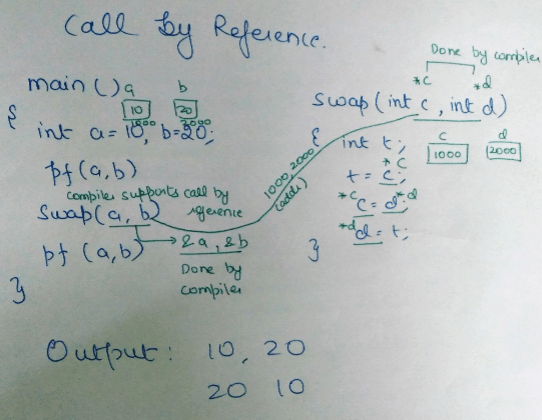 Call by Reference.
main() a b
10 20
1000 2000
{
int a=10, b=20;
pf(a,b)
compiler supports call by reference
swap(a, b)
→ &a, &b
Done by compiler
pf (a,b)
}
Done by compiler
*c *d
swap(int c, int d)
1000, 2000
(adds)
{ int t;
c d
1000 2000
*c
t = c;
*c *d
c = d;
*d
d = t;
}
Output: 10, 20
20 10